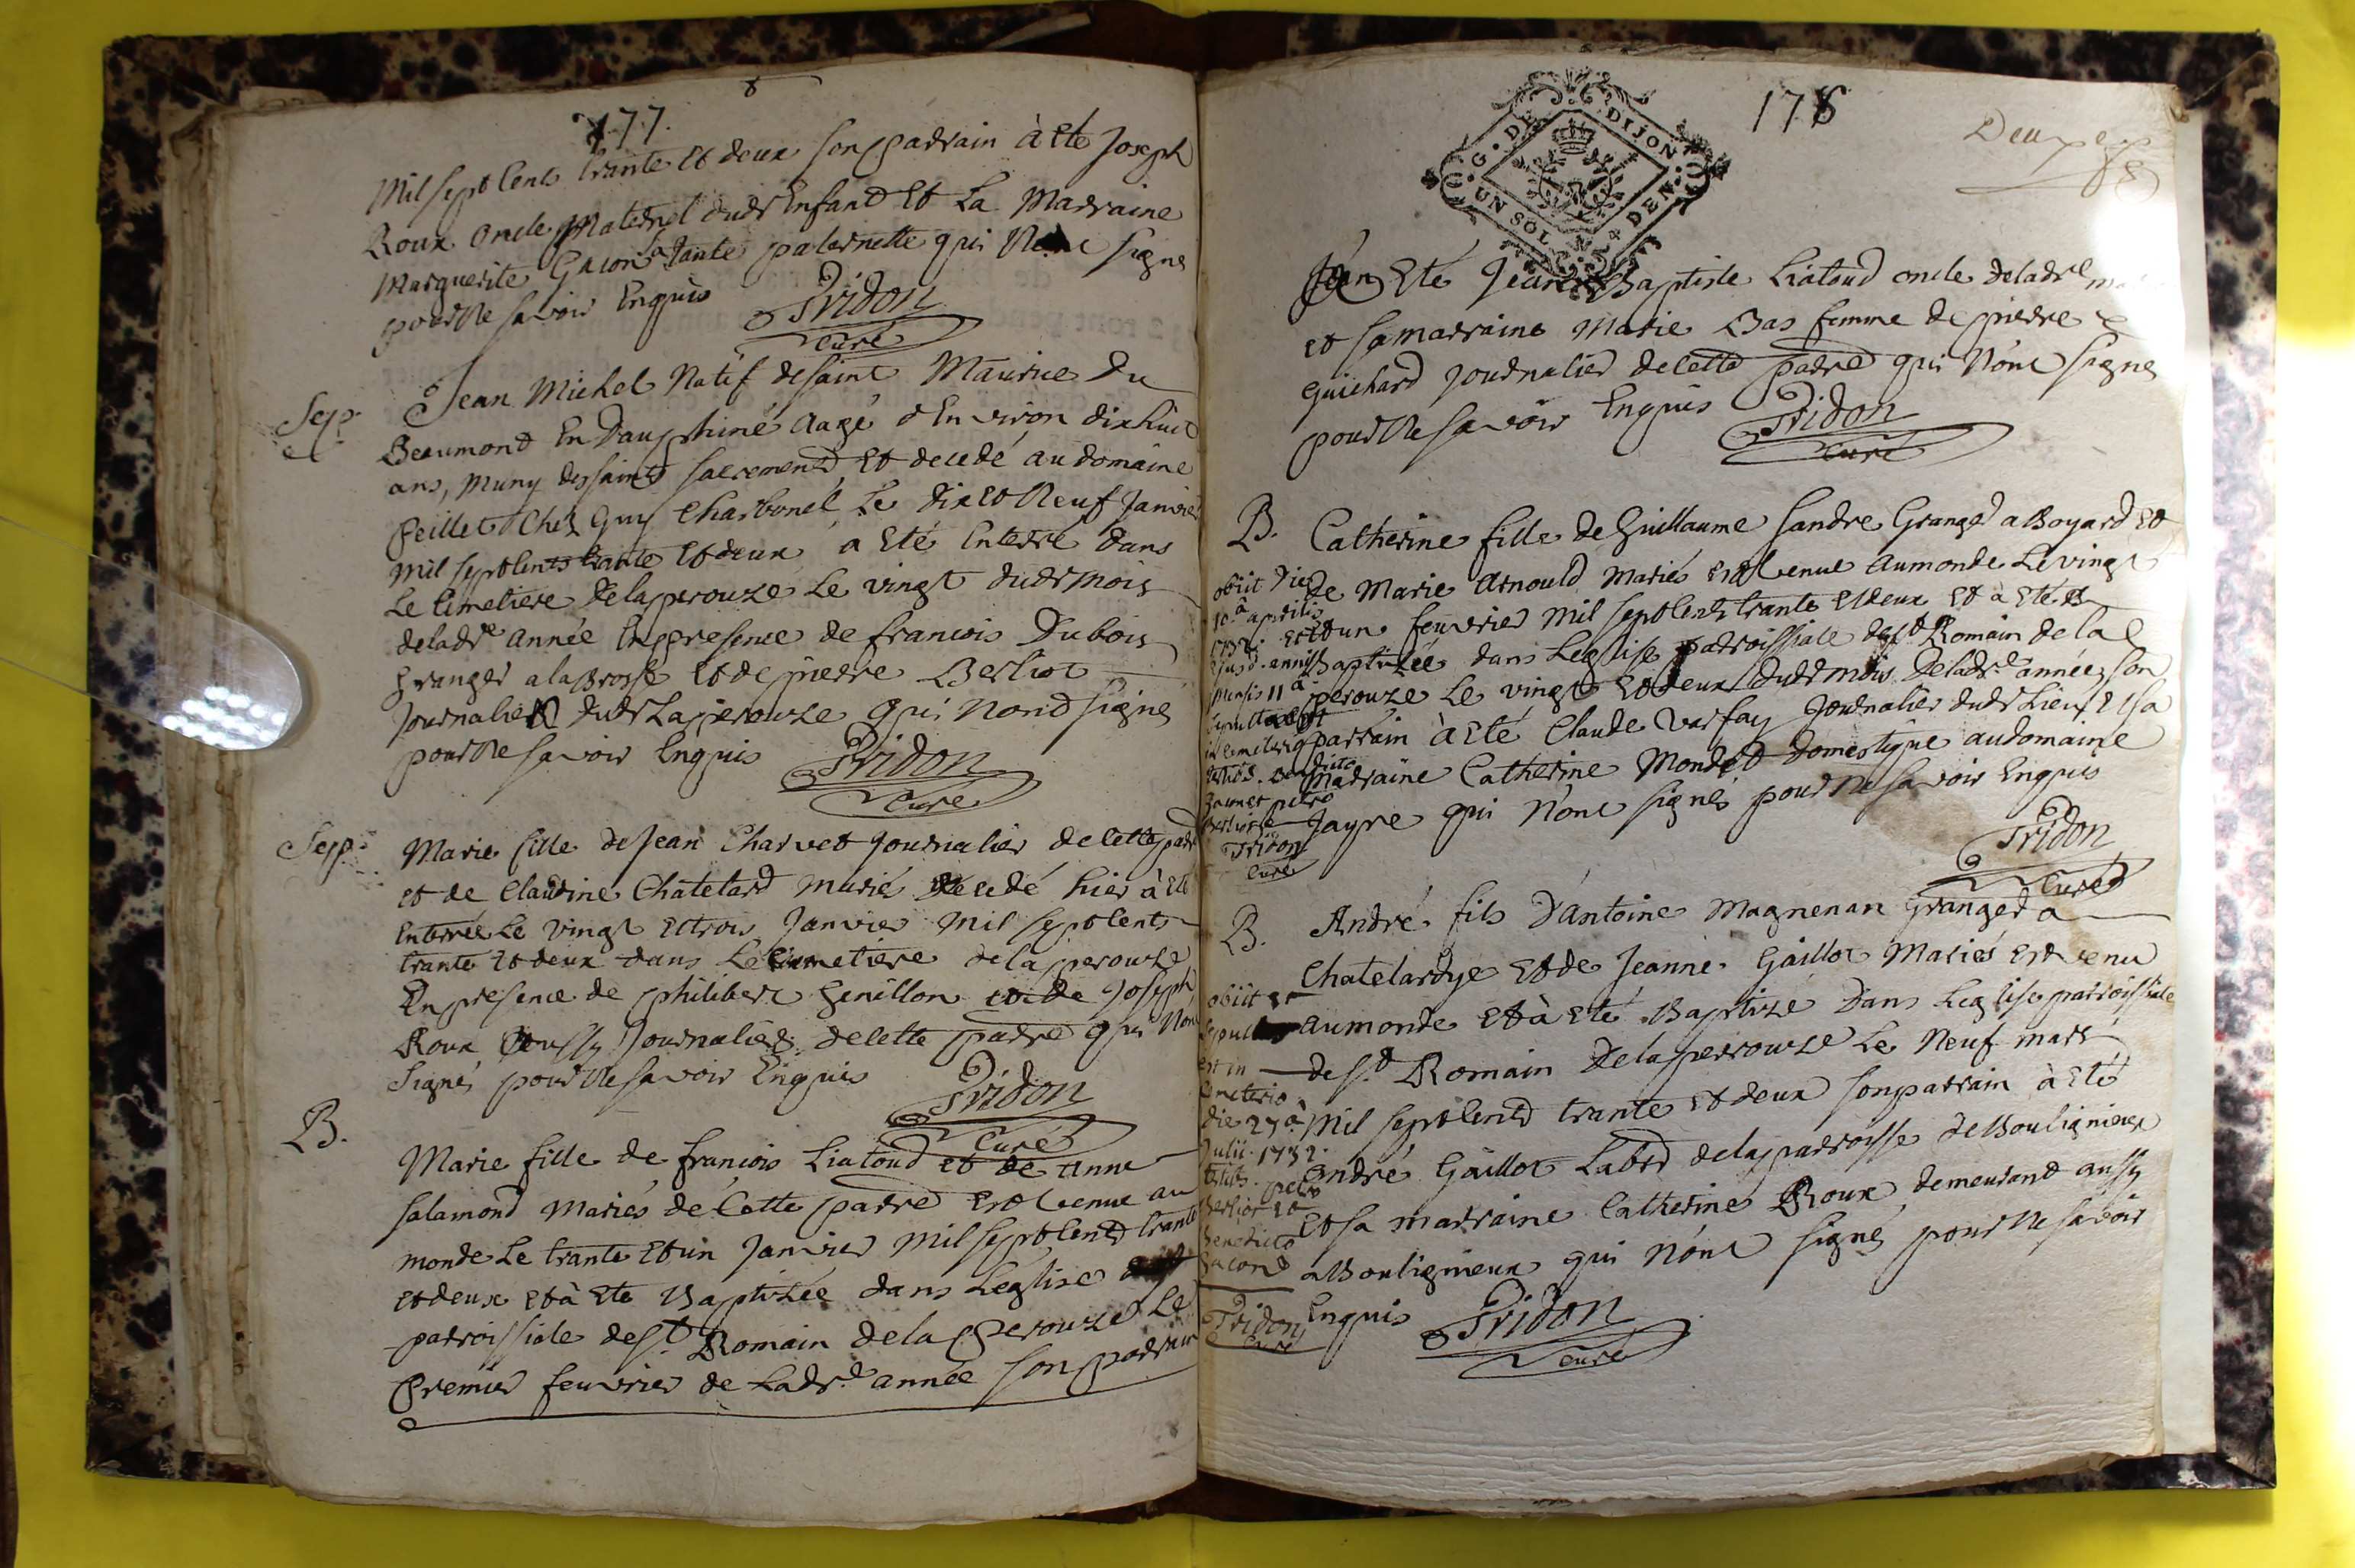 177
8
Mil sept Cents trante et deux son parrain à eté Joseph
Roux oncle Maternel dudt Enfant et La Marraine
Marguerite Gacon tante paternelle qui N'ont signé
pour Ne savoir Enquis
Tridon
curé
Sep.
Jean Michel Natif de saint Maurice du
Beaumont En Dauphiné aagé d'Environ dix huit
ans, muny des saints sacrements et decedé au domaine
feillet Chez Guy Charbonel, Le dix et Neuf Janvier
mil sept Cents trante et deux a eté Enterré dans
Le Cimetiere de la perouze Le vingt dudt mois
de ladte année En presence de francois Dubois
Granger a la Brosse et de pierre Berliot
Journalier dudt Laperouze qui N'ont signé
pour Ne savoir Enquis
Tridon
curé
Sep.
Marie fille de Jean Charvet Journalier de cette parr
et de Claudine Chatelard mariés decedé hier à eté
Enterrée Le vingt et trois Janvier Mil sept Cents
trante et deux dans Le Cimetiere de la perouze
En presence de philibert Genillon et de Joseph
Roux aussy Journaliers de cette parre qui N'ont
signés pour Ne savoir Enquis
Tridon
Curé
B.
Marie fille de francois Liatoud et de Anne
salamond Mariés de Cette parre est venue au
monde Le trante et un Janvier Mil sept Cents trante
et deux et à eté Baptizée dans L'eglise
parroissiale de st Romain de la perouze Le
premier feuvrier de Ladte année son parrain
178
Deux
G. DE DIJON
UN SOL 4 DEN.
eté Jean Baptiste Liatoud oncle de ladte
et sa marraine Marie Bas femme de pierre
Guichard Journalier de cette parre qui N'ont signé
pour Ne savoir Enquis
Tridon
Curé
B.
Catherine fille de Guillaume sandre Granger a Boyard et
de Marie Arnould Mariés est venue au monde Le vingt
et un feuvrier mil sept Cents trante et deux et à eté
Baptizée dans L'eglise parroissiale de st Romain de la
perouze Le vingt et deux dudt mois de ladte année, son
parrain à eté Claude Varfay Journalier dudt Lieu et sa
Marraine Catherine Monder domestique au domaine
Jayre qui N'ont signés pour Ne savoir Enquis
Tridon
Curé
obiit die
10a aprilis
1732.
ejusd. anni
mensis 11a
sepulta est
in cemeterio
testib. benedicto
Gacon et petro
Berliot
Tridon
Curé
B.
André fils D'antoine Magnenan Granger a
Chatelardye et de Jeanne Gaillot Mariés est venu
au monde et à eté Baptizé Dans L'eglise parroissiale
de st Romain de la perrouze Le Neuf mars
Mil sept Cents trante et deux son parrain à eté
André Gaillot Labr de la parroisse de Bouligneux
et sa marraine Catherine Roux demeurant aussy
a Bouligneux qui N'ont signé pour Ne savoir
Enquis
Tridon
curé
obiit et
sepultus
est in
cemeterio
die 27a
Julii. 1732.
testib. petro
Berliot et
benedicto
Gacond
Tridon
Curé